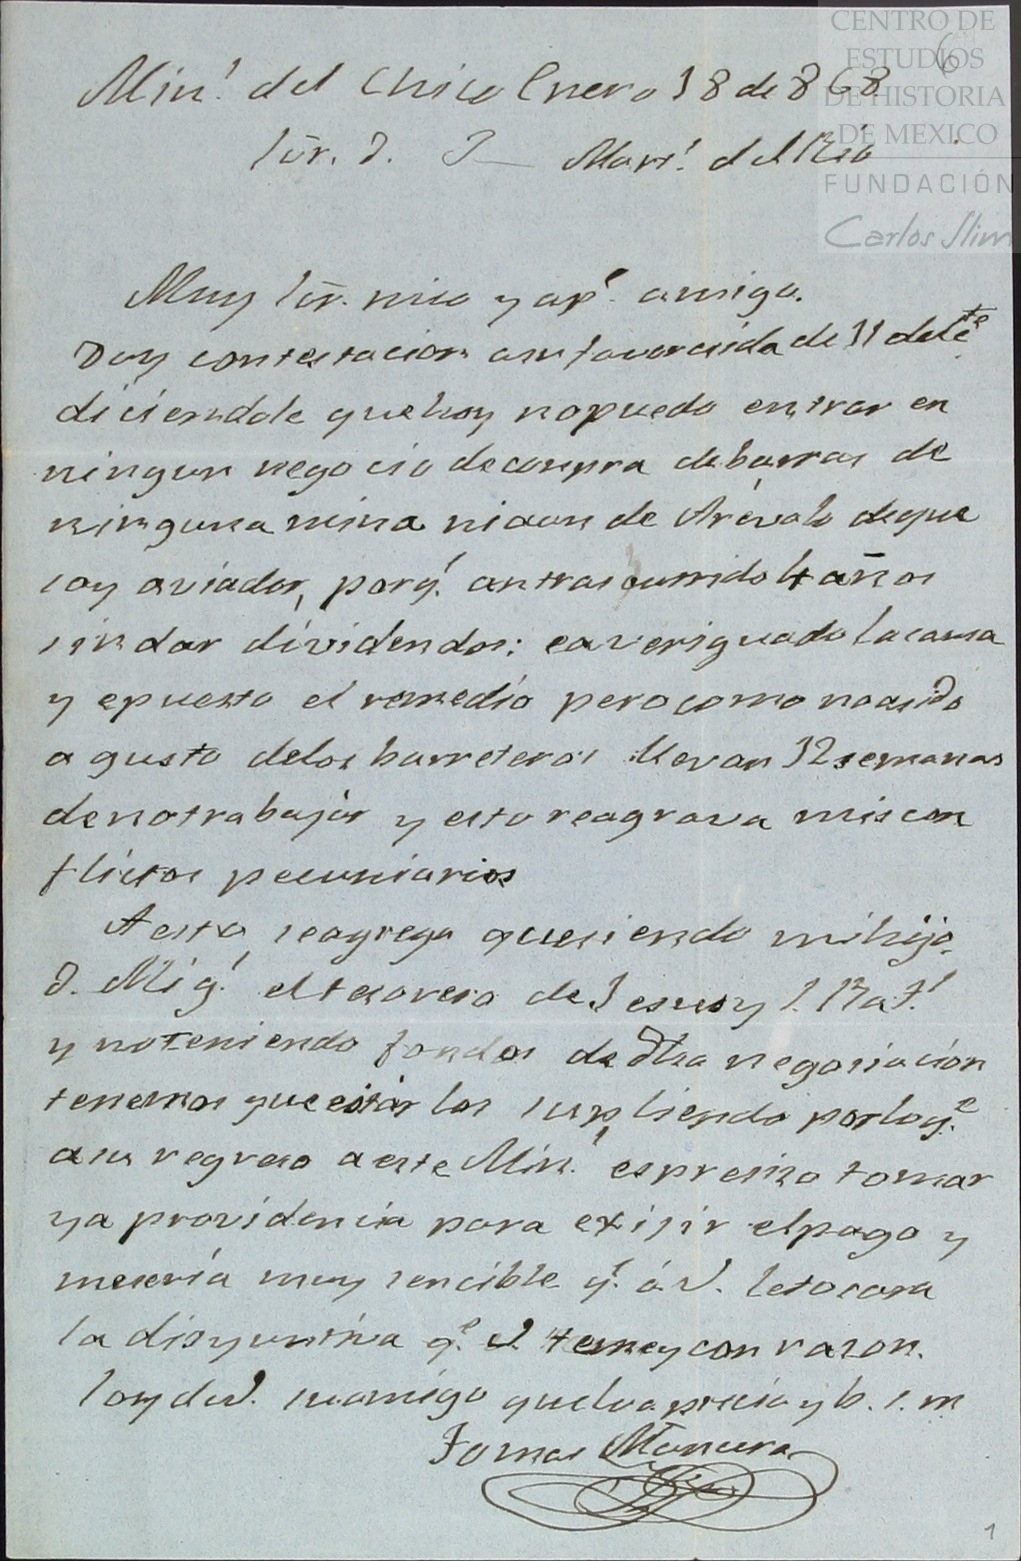 CENTRO DE
ESTUDIOS
DE HISTORIA
DE MEXICO
FUNDACIÓN
Carlos Slim
6
Min.l del Chico Enero 18 de 868
Sor. D. J Mari.l del Rio
Muy Sor. mio y ap.o amigo.
Doy contestacion asu favorecida de 11 delc.te
diciendole que hoy nopuedo entrar en
ningun negocio decompra debarras de
ninguna mina niaun de Arévalo deque
soy aviador, porq.e antrascurrido 4 años
sindar dividendos: eaveriguado lacausa
y epuesto el remedio perocomo noasido
agusto delos barreteros llevan 12 semanas
denotrabajar y esto reagrava miscon
flictos pecuniarios
Aesto, seagrega quesiendo mihijo
D. Mig.l eltesorero de Jesus y S. Raf.l
y noteniendo fondos de dha negosiación
tenemos queestar los supliendo porloq.e
asu regreso aeste Min.l espresiso tomar
ya providencia para exijir elpago y
meseria muy sencible q.e á V. letocara
la disyuntiva q.e V. teme y con rason.
Soy de V. suamigo queloaprecia y b. s. m
Tomas Mancera
1